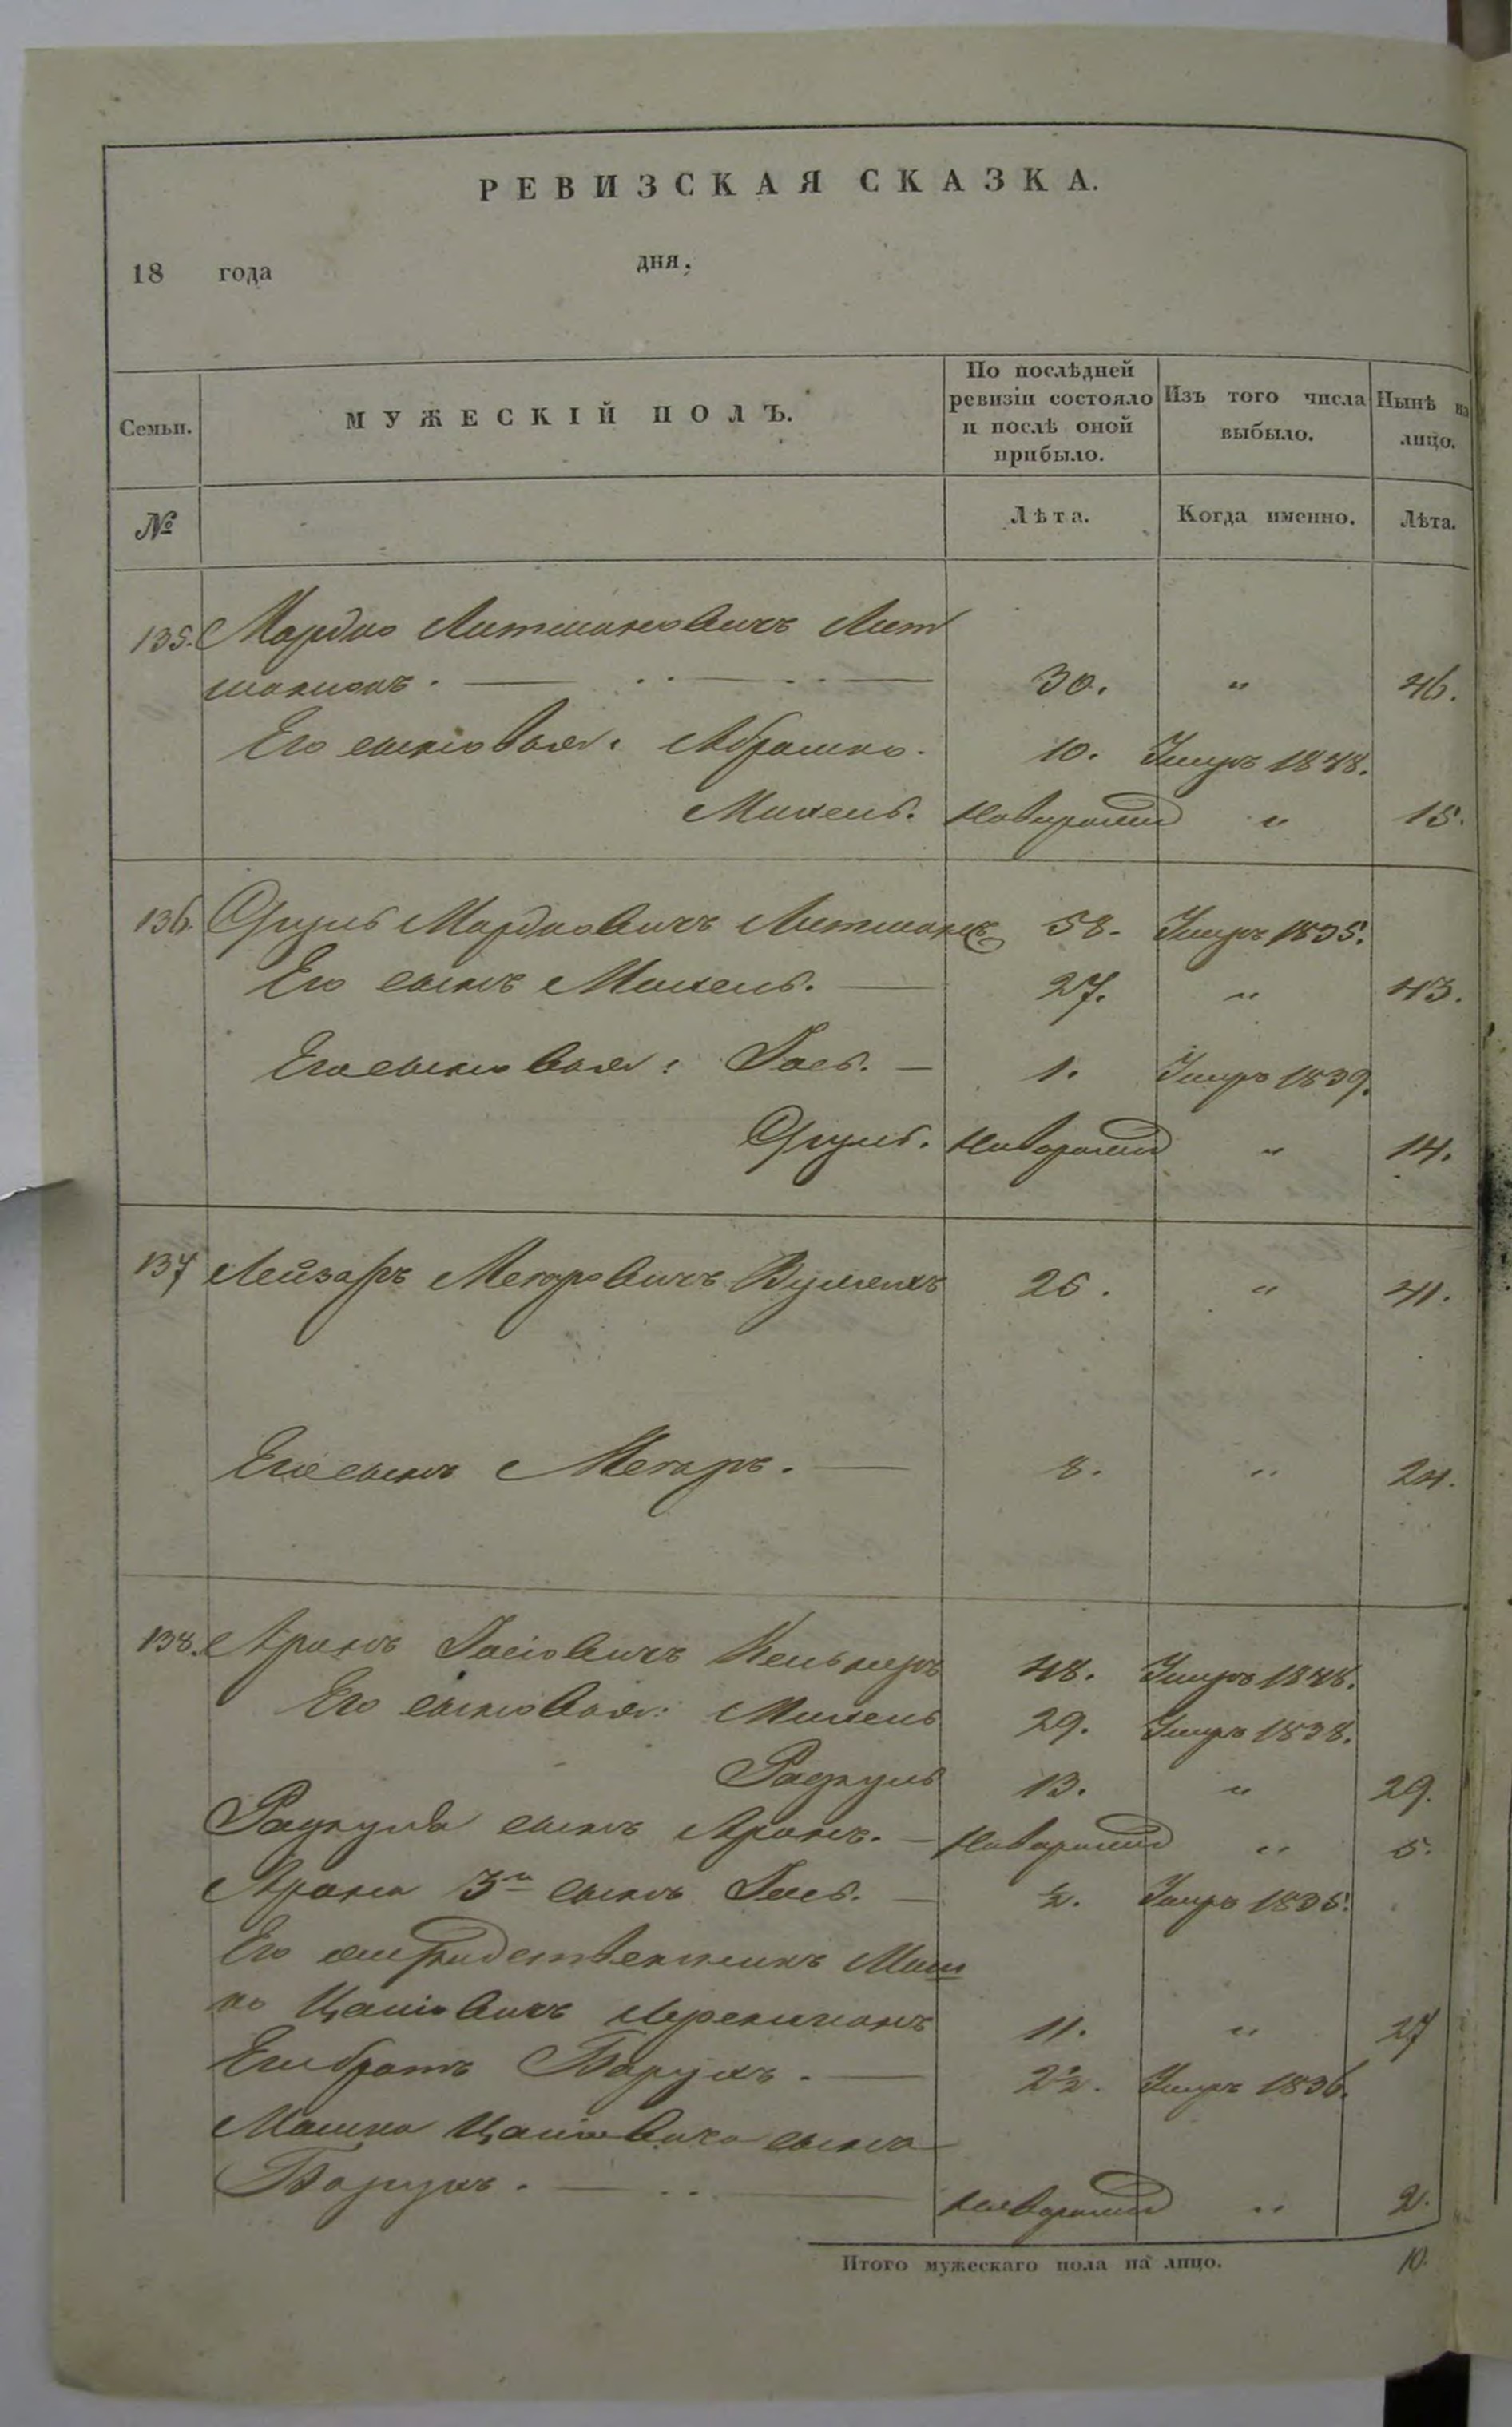 РЕВИЗСКАЯ СКАЗКА.
18 года дня.
Семьи. МУЖЕСКІЙ ПОЛЪ. По послѣдней ревизіи состояло и послѣ оной прибыло. Изъ того числа выбыло. Нынѣ на лицо.
№ Лѣта. Когда именно. Лѣта.
135. Мордко Литмановичъ Лит
манъ. 30. " 46.
Его сыновья: Абрамко. 10. Умеръ 1848.
Михель. Новорожд " 15.
136. Сруль Мордковичъ Литман 58. Умеръ 1835.
Его сынъ Михель. 27. " 43.
Его сыновья: Іось. 1. Умеръ 1839.
Сруль. Новорожд " 14.
137 Лейзаръ Мееровичъ 25. " 41.
Его сынъ Мееръ. 8. " 24.
138. Аронъ Іосіовичъ Кельнеръ 48. Умеръ 1848.
Его сыновья: Михель 29. Умеръ 1838.
13. " 29.
сынъ Аронъ. Новорожд " 5.
Арона 3й сынъ Іось. ½. Умеръ 1835.
Его Мош
ко 11. " 27
Его братъ Борухъ. 2½. Умеръ 1836.
Мошка сынъ
Борухъ. Новорожд " 2.
Итого мужескаго пола на лицо. 10.